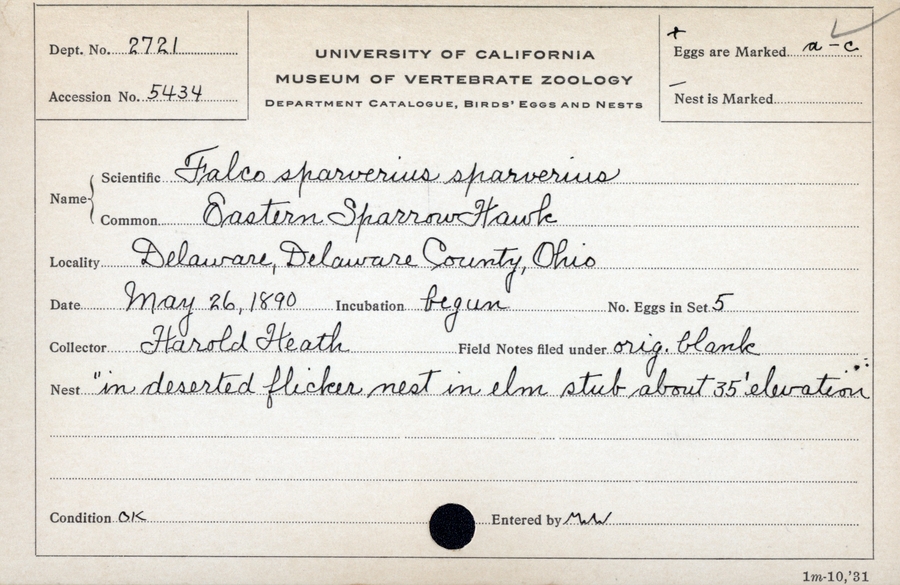 Dept. No. 2721
Accession No. 5434
UNIVERSITY OF CALIFORNIA
MUSEUM OF VERTEBRATE ZOOLOGY
DEPARTMENT CATALOGUE, BIRDS' EGGS AND NESTS
+
Eggs are Marked a-c
–
Nest is Marked
Name Scientific Falco sparverius sparverius
Common Eastern Sparrow Hawk
Locality Delaware, Delaware County, Ohio
Date May 26, 1890 Incubation begun No. Eggs in Set 5
Collector Harold Heath Field Notes filed under orig. blank
Nest "in deserted flicker nest in elm stub about 35' elevation"
Condition OK Entered by
1m-10,'31